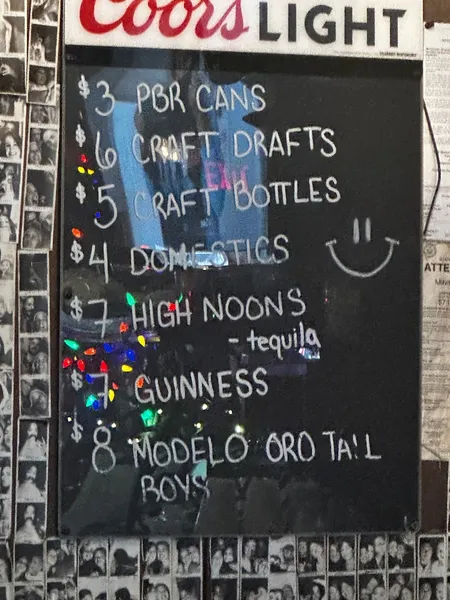 Coors LIGHT
$3 PBR CANS
$6 CRAFT DRAFTS
$5 CRAFT BOTTLES
$4 DOMESTICS
$7 HIGH NOONS
- tequila
$7 GUINNESS
$8 MODELO ORO TALL
BOYS
EXIT
ATTE